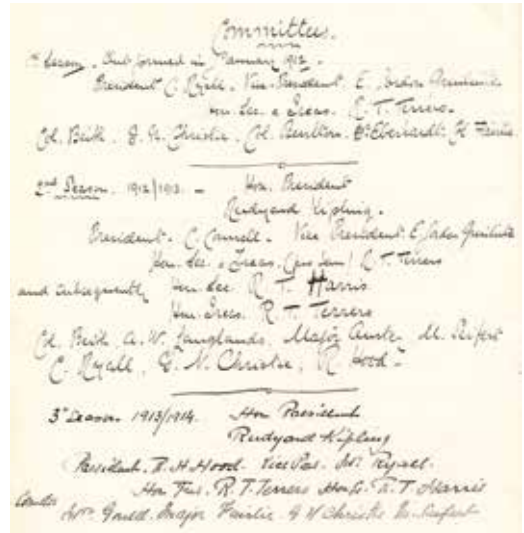 Committees.
1st Season. Club formed in January 1912.
President C. Ryall. Vice-President. E. Gordon
Hon. Sec. & Treas. R. T. Terrers.
Col. Beith. G. N. Christie. Col. Dr. Eberhardt.
2nd Season. 1912/1913. - Hon. President
Rudyard Kipling.
President. C. Vice President. E. Gordon
Hon. Sec. & Treas. (pro tem) R. T. Terrers
and subsequently Hon. Sec. R T. Harris
Hon. Treas. R T. Terrers
Col. Beith A. W. Langlands, Major M. Seifert
C. Ryall, G. N. Christie, R Hood.-
3rd Season. 1913/1914. Hon President
Rudyard Kipling
President. R. H. Hood. Vice Pres. Ryall.
Hon Treas. R. T. Terrers Hon Sec. R. T. Harris
Gould. Major Fairlie. G N Christie M. Seifert